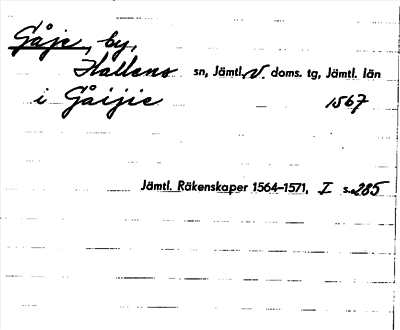 Gåje, by,
Hallens sn, Jämtl. V. doms. tg, Jämtl. län
i Gåijie 1567
Jämtl. Räkenskaper 1564–1571, I s. 285